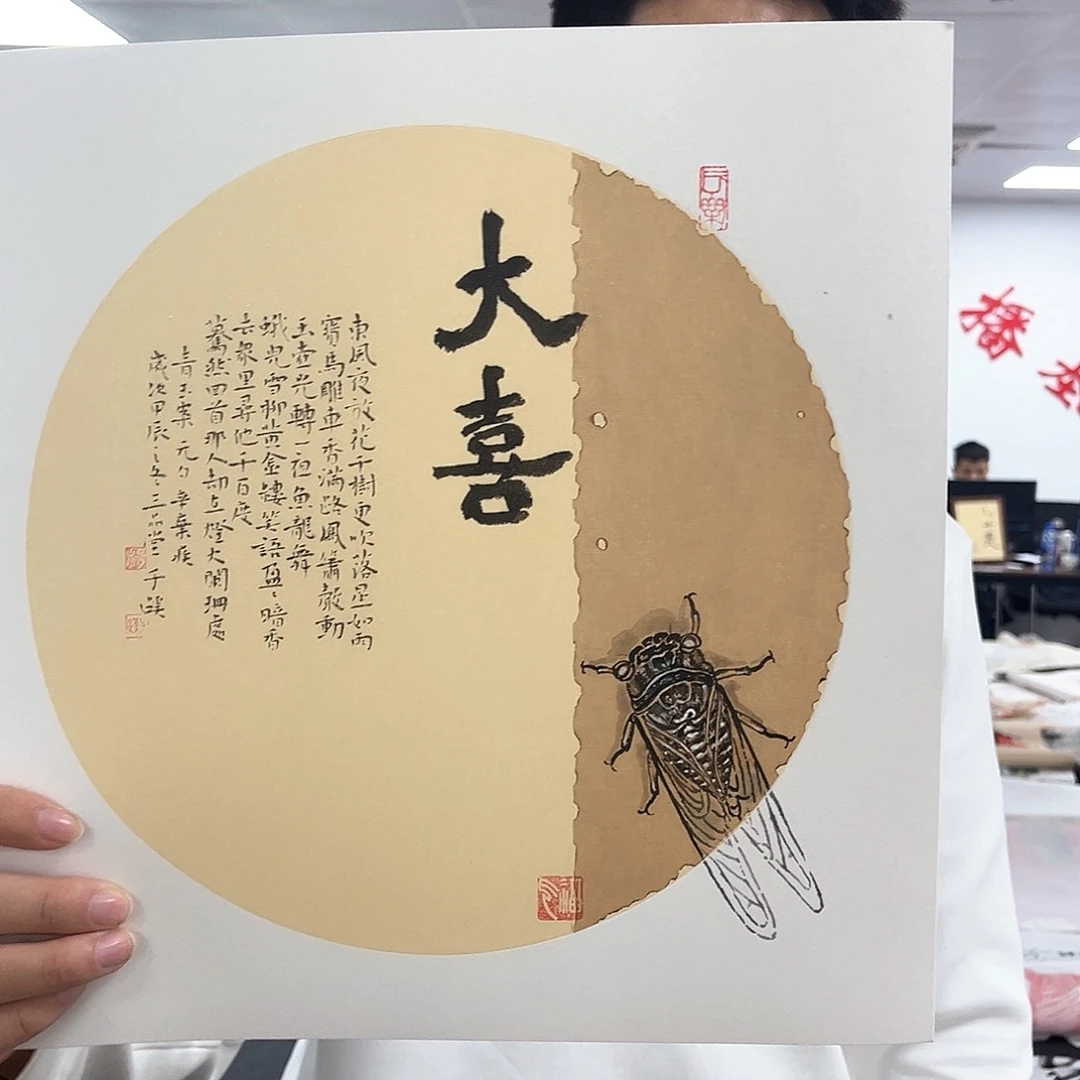 大喜
東風夜放花千樹更吹落星如雨
寶馬雕車香滿路鳳簫聲動
玉壺光轉一夜魚龍舞
蛾兒雪柳黃金縷笑語盈〻暗香
去衆里尋他千百度
驀然回首那人却在燈火闌珊處
青玉案 元夕 辛棄疾
歲次甲辰之冬三品堂
播